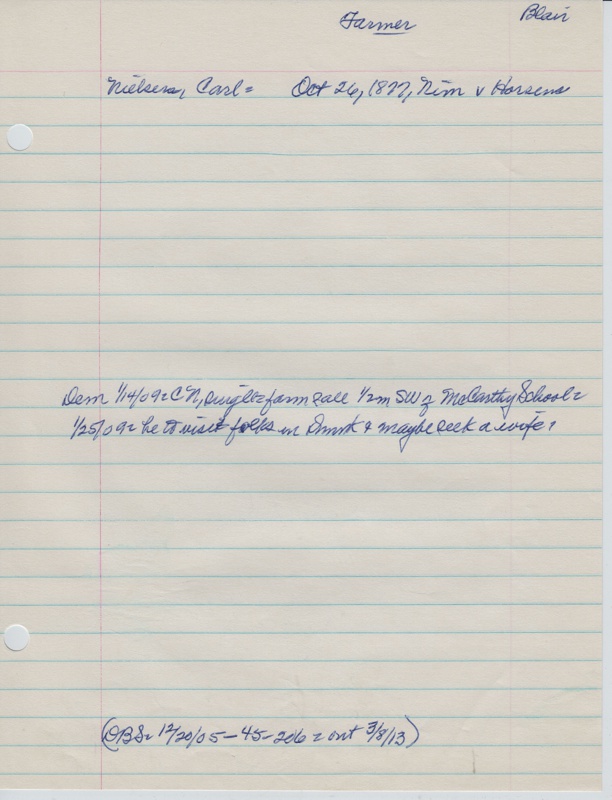 Farmer
Blair
Nielsen, Carl= Oct 26, 1877, Nim v Horsens
Dem 1/14/09= C N, single= farm sale 1/2m SW of McCarthy School=
1/25/09= he to visit folks in Dmrk & maybe seek a wife,
(DBS= 12/20/05-45-206= out 3/8/13)